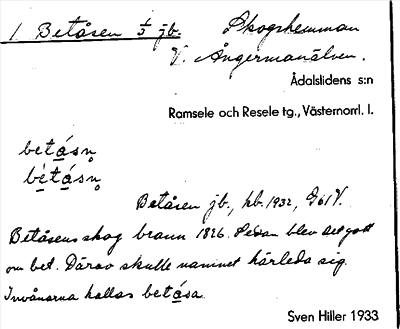 1 Betåsen 1/5 jb. Skogshemman
V. Ångermanälven.
Ådalslidens s:n
Ramsele och Resele tg., Västernorrl. l.
betåsn̥
bètåsn̥
Betåsen jb., kb. 1932, G61V.
Betåsens skog brann 1826. Sedan blev det gott
om bet. Därav skulle namnet härleda sig.
Invånarna kallas betåsa.
Sven Hiller 1933